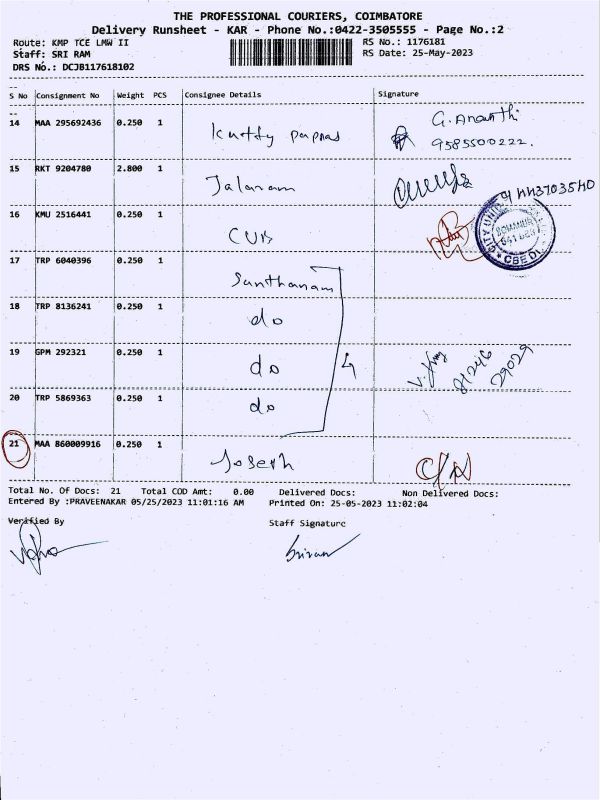 THE PROFESSIONAL COURIERS, COIMBATORE
Delivery Runsheet - KAR - Phone No.:0422-3505555 - Page No.:2
Route: KMP TCE LMW II RS No.: 1176181
Staff: SRI RAM RS Date: 25-May-2023
DRS No.: DCJB117618102
S No Consignment No Weight PCS Consignee Details Signature
14 MAA 295692436 0.250 1 G. Ananthi
9585500222.
15 RKT 9204780 2.800 1 Jalaram
16 KMU 2516441 0.250 1 CUB
17 TRP 6040396 0.250 1 Santhanam
18 TRP 8136241 0.250 1 do
19 GPM 292321 0.250 1 do 4
81246
29029
20 TRP 5869363 0.250 1 do
21 MAA 860009916 0.250 1 Joseph
Total No. Of Docs: 21 Total COD Amt: 0.00 Delivered Docs: Non Delivered Docs:
Entered By :PRAVEENAKAR 05/25/2023 11:01:16 AM Printed On: 25-05-2023 11:02:04
Verified By Staff Signature
Sriram